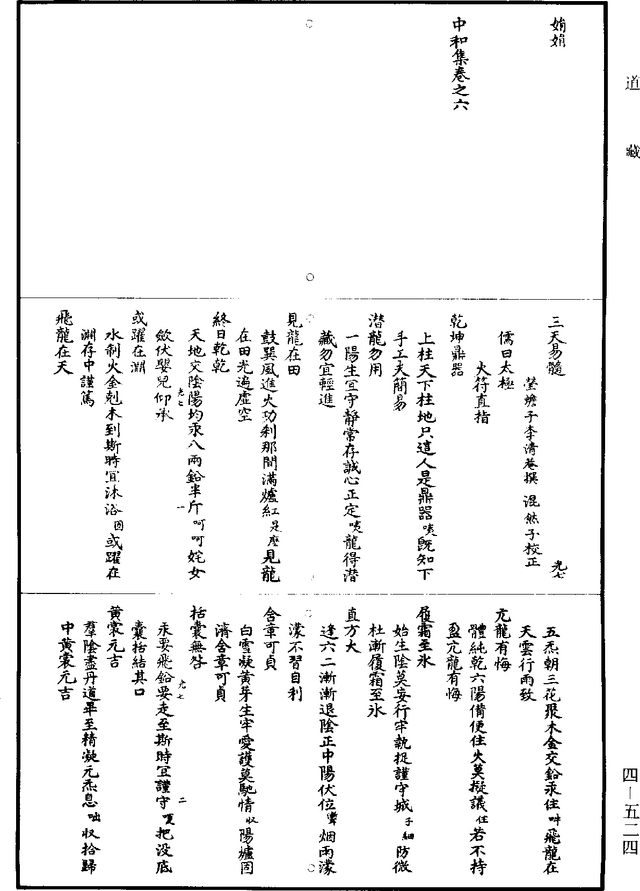 道藏
娋娟
中和集卷之六
三天易髓
瑩蟾子李清菴撰 混然子校正
光七
儒曰太極
火符直指
乾坤鼎器
上柱天下柱地只這人是鼎器喚既知下
手工夫簡易
潜龍勿用
一陽生宜守靜常存誠心正定喚龍得潜
藏勿宜輕進
見龍在田
鼓巽風進火功刹那間滿爐紅是麼見龍
在田光遍虛空
終日乾乾
天地交陰陽均汞八兩鉛半斤呵呵姹女
光七 一
斂伏嬰兒仰承
或躍在淵
水制火金剋木到斯時宜沐浴囡或躍在
淵存中謹篤
飛龍在天
五炁朝三花聚木金交鉛汞住吽飛龍在
天雲行雨致
亢龍有悔
體純乾六陽備便住火莫擬議住若不持
盈亢龍有悔
履霜至氷
始生陰莫妄行牢執捉謹守城子細防微
杜漸履霜至氷
直方大
逢六二漸漸退陰正中陽伏位霅烟雨濛
濛不習自利
含章可貞
白雪凝黄芽生牢愛護莫馳情収陽爐固
濟含章可貞
括囊無咎
汞要飛鉛要走至斯時宜謹守嗄把没底
光七 二
囊括結其口
黄裳元吉
羣陰盡丹道畢至精凝元炁息咄収拾歸
中黄裳元吉
四—五二四